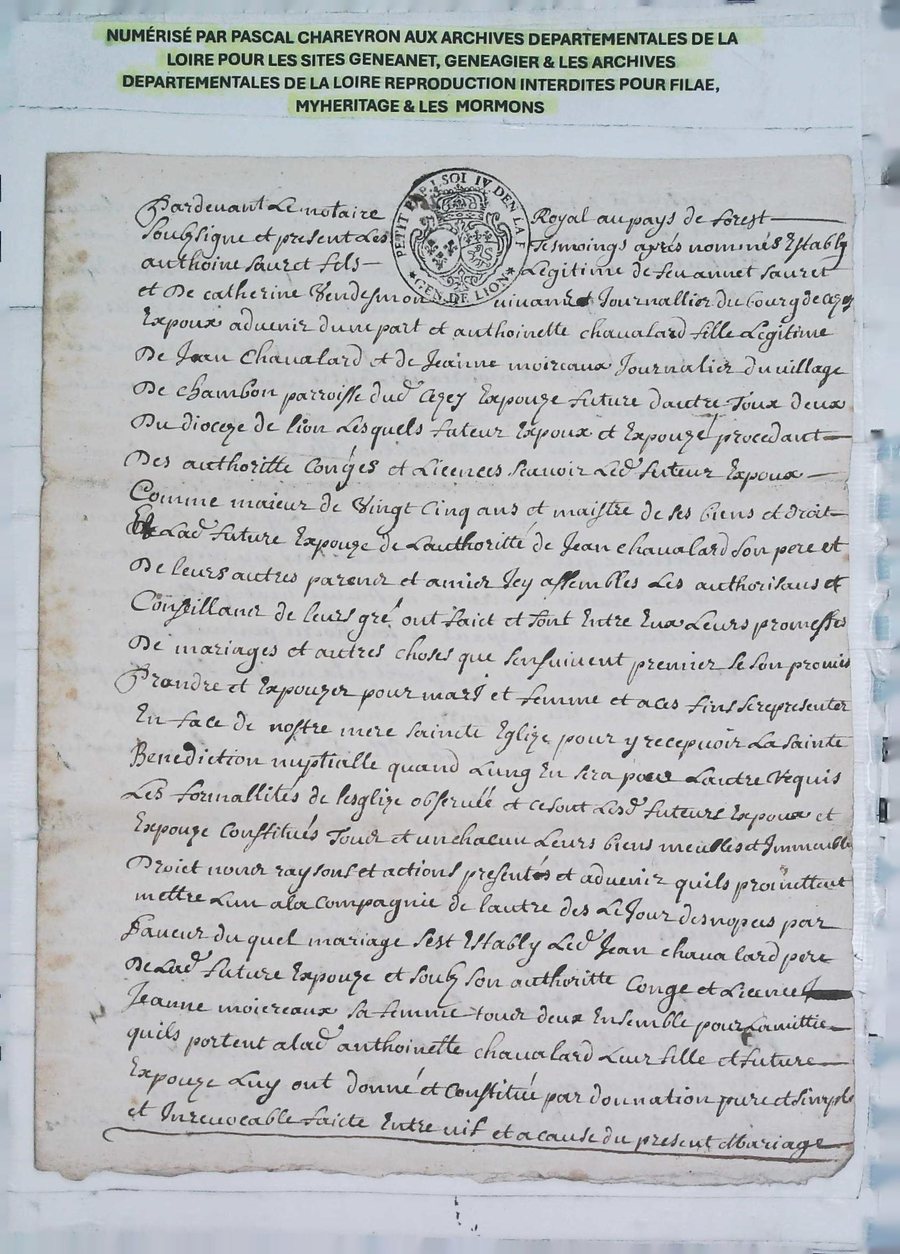 NUMÉRISÉ PAR PASCAL CHAREYRON AUX ARCHIVES DEPARTEMENTALES DE LA
LOIRE POUR LES SITES GENEANET, GENEAGIER & LES ARCHIVES
DEPARTEMENTALES DE LA LOIRE REPRODUCTION INTERDITES POUR FILAE,
MYHERITAGE & LES MORMONS
PETIT PAP. 1 SOL IV DEN LA F
GEN. DE LION
Pardevant Le notaire Royal au pays de forest
soubsigne et present Les Tesmoings aprés nommés Estably
anthoine sauret fils Legitime de feu annet sauret
et De catherine Vendesmon vivant Journallier du bourg de
Expoux advenir dune part et anthoinette chavalard fille Legitime
De Jean Chavalard et de Jeanne moireaux Journalier du village
De chambon parroisse dud Expouze future dautre Toux deux
Du dioceze de lion Lesquels futeur Expoux et Expouze procedant
Des authoritte Congés et Licences scavoir Led futeur Expoux
Comme maieur de Vingt Cinq ans et maistre de ses biens et droit
Et Lad future Expouze de Lauthoritté de Jean chavalard son pere et
De leurs autres parens et amier Icy assembles Les authorisans et
Conseillans de leurs gré ont faict et font Entre Eux Leurs promesses
De mariages et autres choses que sensuivent premier se son promis
Prandre et Expouzer pour mary et femme et a ces fins se representer
En face de nostre mere saincte Eglize pour y recepvoir La sainte
Benediction nuptialle quand Lung En sera pour Lautre Requis
Les formallites de lesglize observéé et ce sont Lesd futeurs Expoux et
Expouze Constitués Tour et un chacun Leurs biens meubles et Immeuble
Droict nons raysons et actions presentés et advenir quils promettent
mettre Lun a la Compagnie de lautre des Le Jour des nopces par
faveur du quel mariage sest Estably Led Jean chavalard pere
De Lad future Expouze et soubs son authoritte Conge et Licence
Jeanne moiereaux sa femme tour deux Ensemble pour Lamittie
quils portent a lad anthoinette chavalard Leur fille et future
Expouze Luy ont donné et Constitué par donnation pure et simple
et Inrevocable faicte Entre vif et a cause du present Mariage